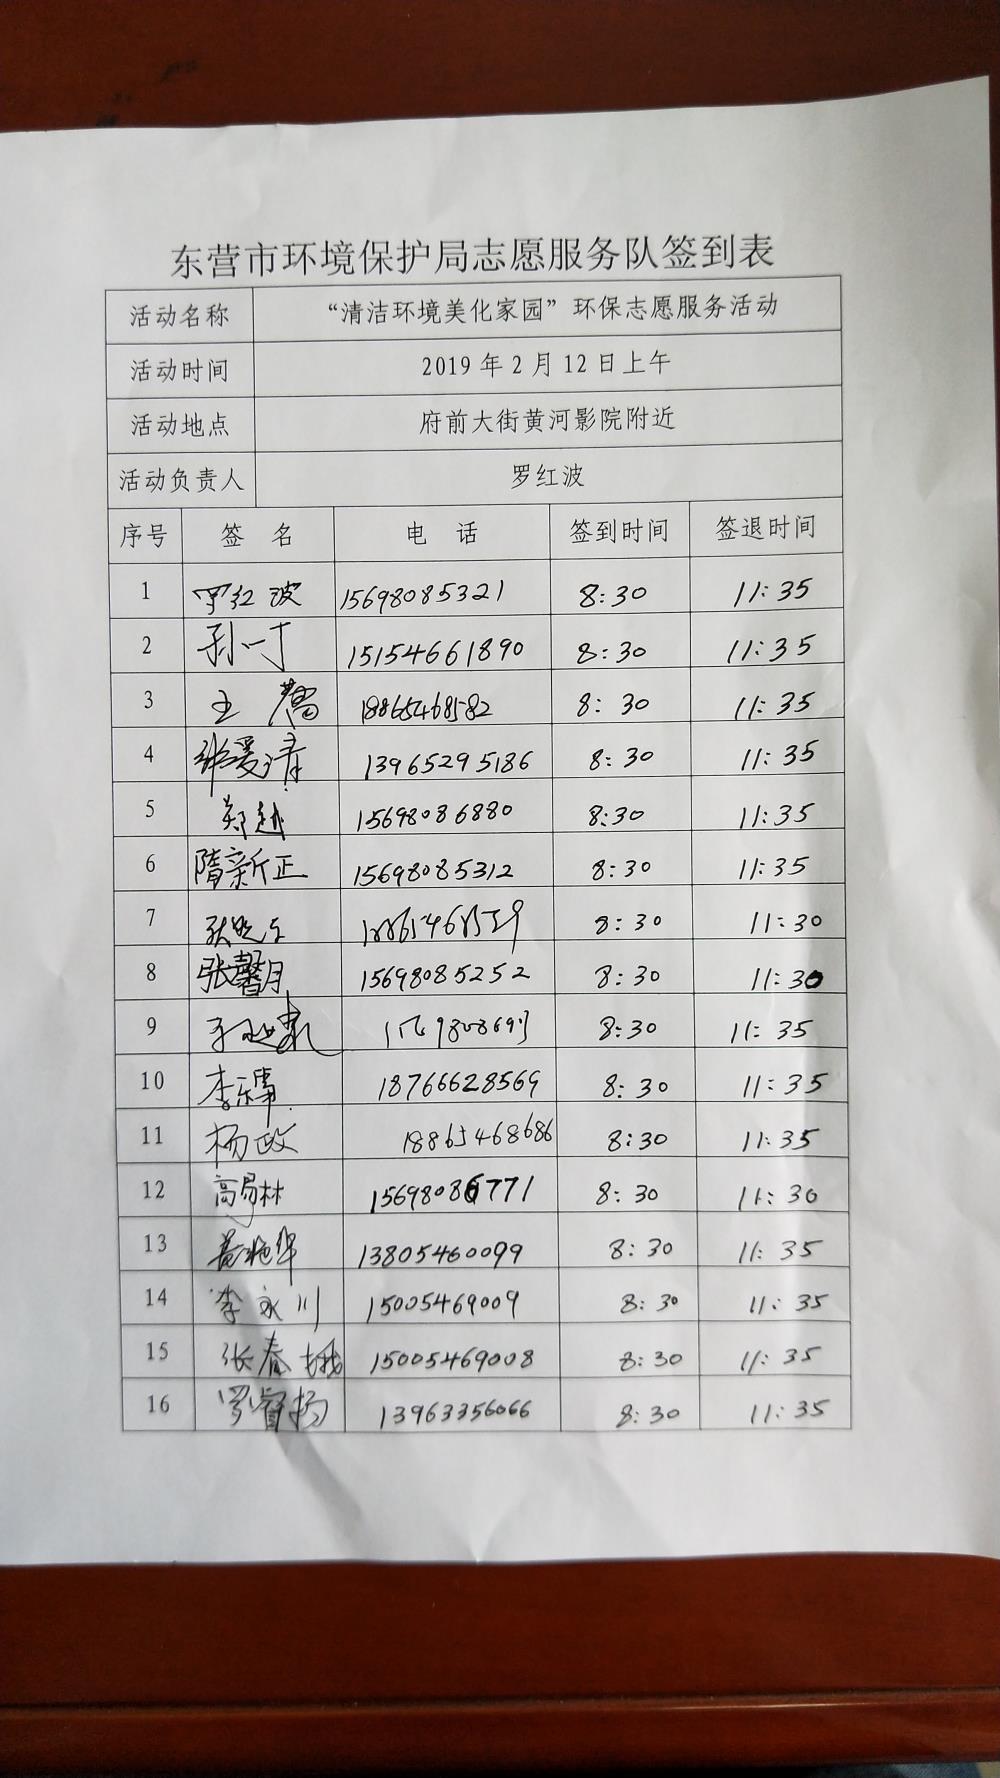 东营市环境保护局志愿服务队签到表
活动名称 “清洁环境美化家园”环保志愿服务活动
活动时间 2019年2月12日上午
活动地点 府前大街黄河影院附近
活动负责人 罗红波
序号 签名 电话 签到时间 签退时间
1 罗红波 15698085321 8:30 11:35
2 孙一丁 15154661890 8:30 11:35
3 王 18865468582 8:30 11:35
4 13965295186 8:30 11:35
5 郑越 15698086880 8:30 11:35
6 隋新正 15698085312 8:30 11:35
7 8:30 11:30
8 张馨月 15698085252 8:30 11:30
9 8:30 11:35
10 18766628569 8:30 11:35
11 杨政 18865468686 8:30 11:35
12 高易林 15698086771 8:30 11:30
13 13805460099 8:30 11:35
14 李永川 15005469009 8:30 11:35
15 张春娥 15005469008 8:30 11:35
16 罗睿扬 13963356066 8:30 11:35